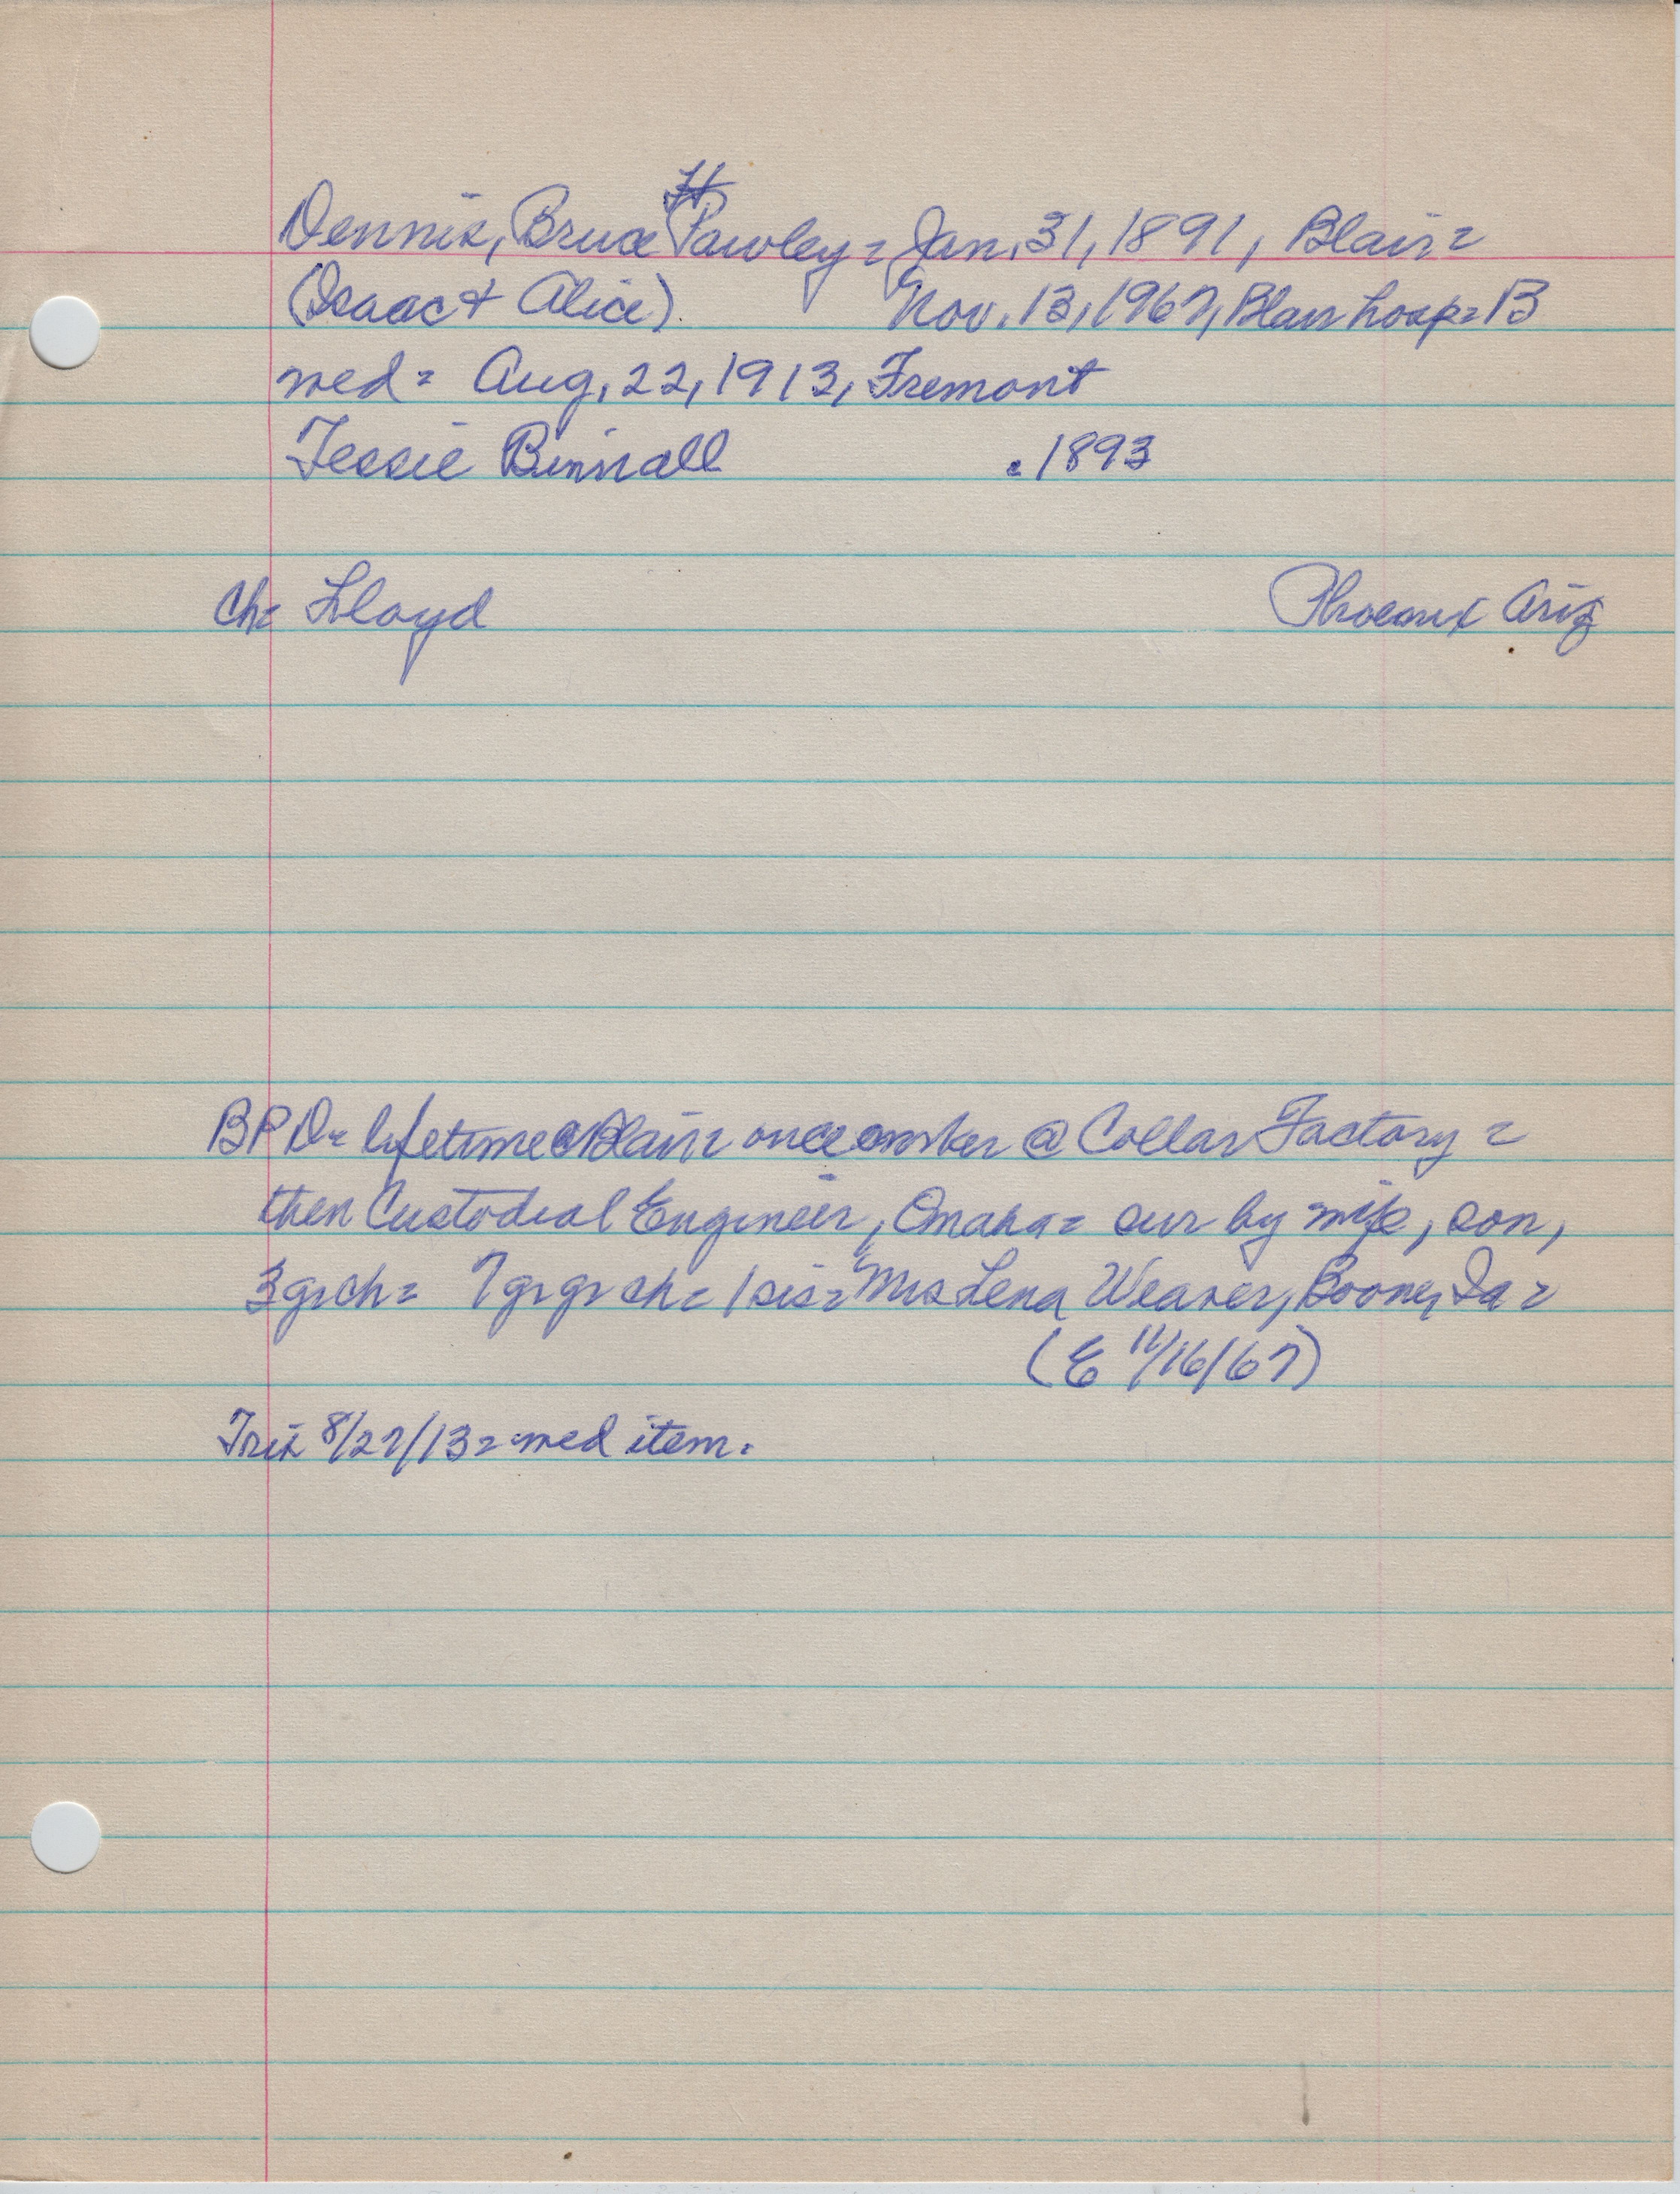 Dennis, Bruce Pawley = Jan. 31, 1891, Blair =
(Isaac & Alice) Nov. 13, 1967, Blair hosp = B
wed = Aug. 22, 1913, Fremont
Tessie Binnall 1893
Ch = Lloyd Phoenix Ariz
BPD = lifetime @ Blair = once worker @ Collar Factory =
then Custodial Engineer, Omaha = sur by wife, son,
3 grch = 7 gr gr ch = 1 sis = Mrs Lena Weaver, Boone, Ia =
(E 11/16/67)
Trib 8/27/13 = wed item.